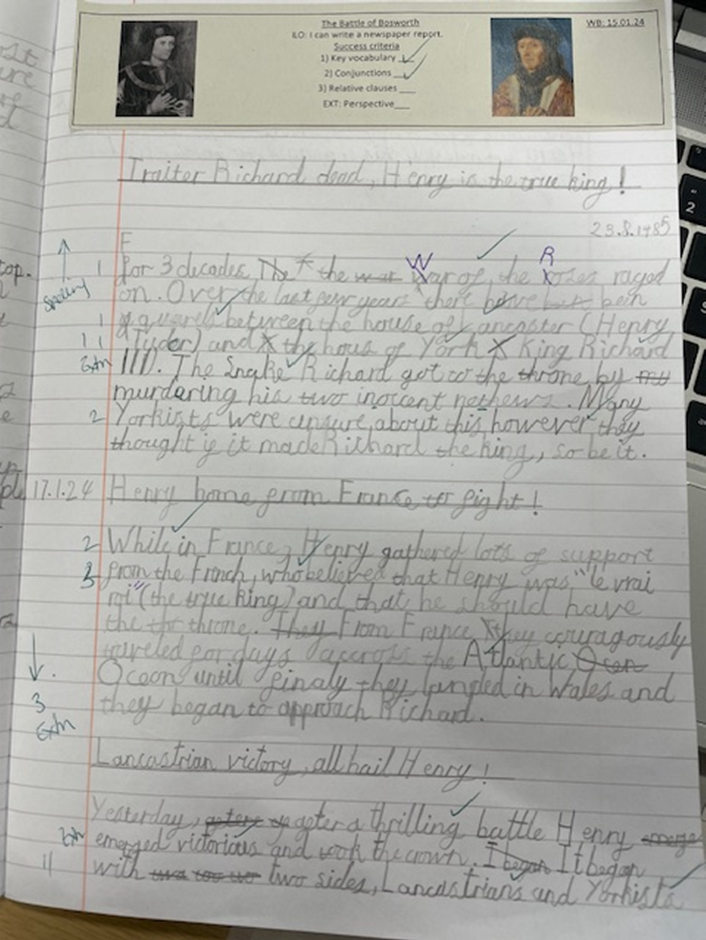 The Battle of Bosworth
WB: 15.01.24
ILO: I can write a newspaper report.
Success criteria
1) Key vocabulary
2) Conjunctions
3) Relative clauses
EXT: Perspective
Traiter Richard dead, Henry is the true king!
23.8.1485
F
W
R
1 for 3 decades, the War of, the roses raged
Spelling
on. Over the last few years there have bein
1 quarels between the house of Lancaster (Henry
11 Tyder) and the hous of York King Richard
Extn III). The Snake Richard got to the throne by
murdering his two inocent nethews. Many
2 Yorkists were unsure about this, however they
thought if it made Richard the king, so be it.
17.1.24 Henry home from France to fight!
2 While in France, Henry gathered lots of support
3 from the French, who believed that Henry was "le vrai
roi" (the true king) and that he should have
the throne. They From France they couragously
traveled for days accross the Atlantic
Oceon until finaly they landed in Wales and
3 they began to approach Richard.
Extn
Lancastrian victory, all hail Henry!
Yesterday, after a thrilling battle Henry
Extn emerged victorious and took the crown. I began It began
11 with two sides, Lancastrians and Yorkists